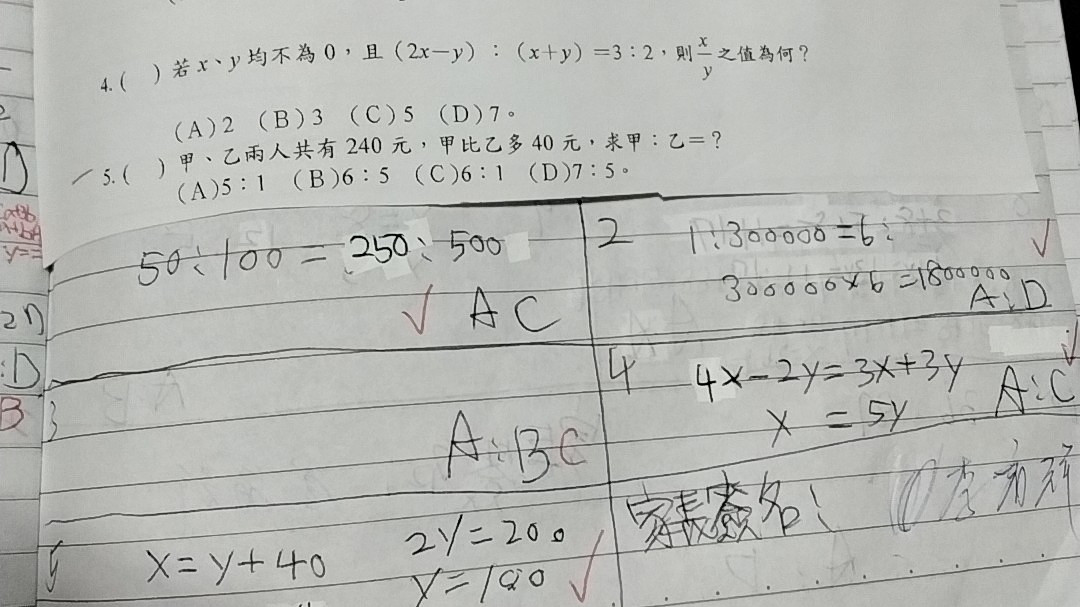 4.( ) 若x、y均不為0，且(2x−y)：(x+y)=3：2，則x/y之值為何？
(A)2 (B)3 (C)5 (D)7。
5.( ) 甲、乙兩人共有240元，甲比乙多40元，求甲：乙=？
(A)5：1 (B)6：5 (C)6：1 (D)7：5。
50:100=250:500
A C
2 1:300000=6:
300000×6=1800000
A:D
3
A:B C
4 4x-2y=3x+3y
x =5y
A:C
家長簽名:
5 x=y+40
2y=200
y=100
2D
:D
B